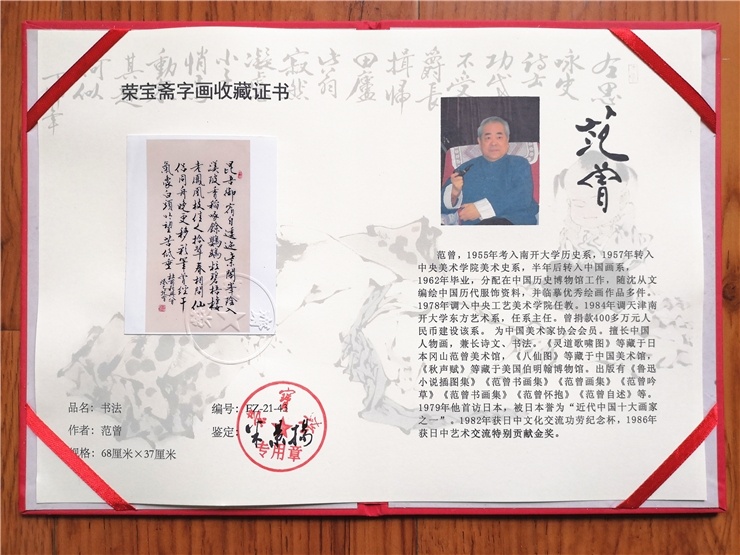 左思
咏史
詩云
功成
不受
爵長
揖歸
田廬
此翁
寂然
荣宝斋字画收藏证书
昆吾御宿自逶迤紫閣峰陰入
渼陂香稻啄餘鸚鵡粒碧梧棲
老鳳凰枝佳人拾翠春相問仙
侶同舟晚更移彩筆昔曾干
氣象白頭吟望苦低垂
品名：书法
作者：范曾
规格：68厘米×37厘米
编号：FZ-21-43
鉴定：米景扬
专用章
范曾
范曾，1955年考入南开大学历史系，1957年转入
中央美术学院美术史系，半年后转入中国画系，
1962年毕业，分配在中国历史博物馆工作，随沈从文
编绘中国历代服饰资料，并临摹优秀绘画作品多件。
1978年调入中央工艺美术学院任教。1984年调天津南
开大学东方艺术系，任系主任。曾捐款400多万元人
民币建设该系。 为中国美术家协会会员。擅长中国
人物画，兼长诗文、书法。《灵道歌啸图》等藏于日
本冈山范曾美术馆，《八仙图》等藏于中国美术馆，
《秋声赋》等藏于美国伯明翰博物馆。出版有《鲁迅
小说插图集》《范曾书画集》《范曾画集》《范曾吟
草》《范曾书画集》《范曾怀抱》《范曾自述》等。
1979年他首访日本。被日本誉为“近代中国十大画家
之一”，1982年获日中文化交流功劳纪念杯，1986年
获日中艺术交流特别贡献金奖。